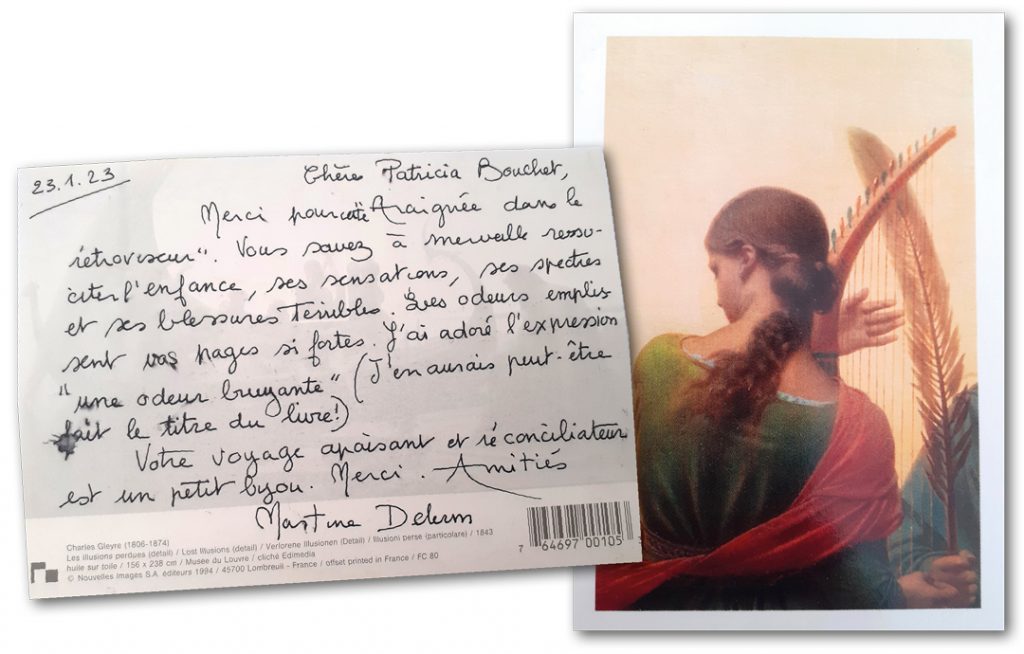 23.1.23
Chère Patricia Bouchet,
Merci pour cette Araignée dans le
rétroviseur". Vous savez à merveille ressu-
citer l'enfance, ses sensations, ses spectres
et ses blessures terribles. Les odeurs emplis-
sent vos pages si fortes. J'ai adoré l'expression
"une odeur bruyante" (J'en aurais peut-être
fait le titre du livre!)
Votre voyage apaisant et réconciliateur
est un petit bijou. Merci. Amitiés
Martine Delerm
Charles Gleyre (1806-1874)
Les illusions perdues (détail) / Lost Illusions (detail) / Verlorene Illusionen (Detail) / Illusioni perse (particolare) / 1843
huile sur toile / 156 x 238 cm / Musée du Louvre / cliché Edimedia
© Nouvelles Images S.A. éditeurs 1994 / 45700 Lombreuil - France / offset printed in France / FC 80
7 64697 00105